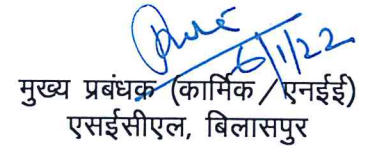 6/1/22
मुख्य प्रबंधक (कार्मिक/एनईई)
एसईसीएल, बिलासपुर